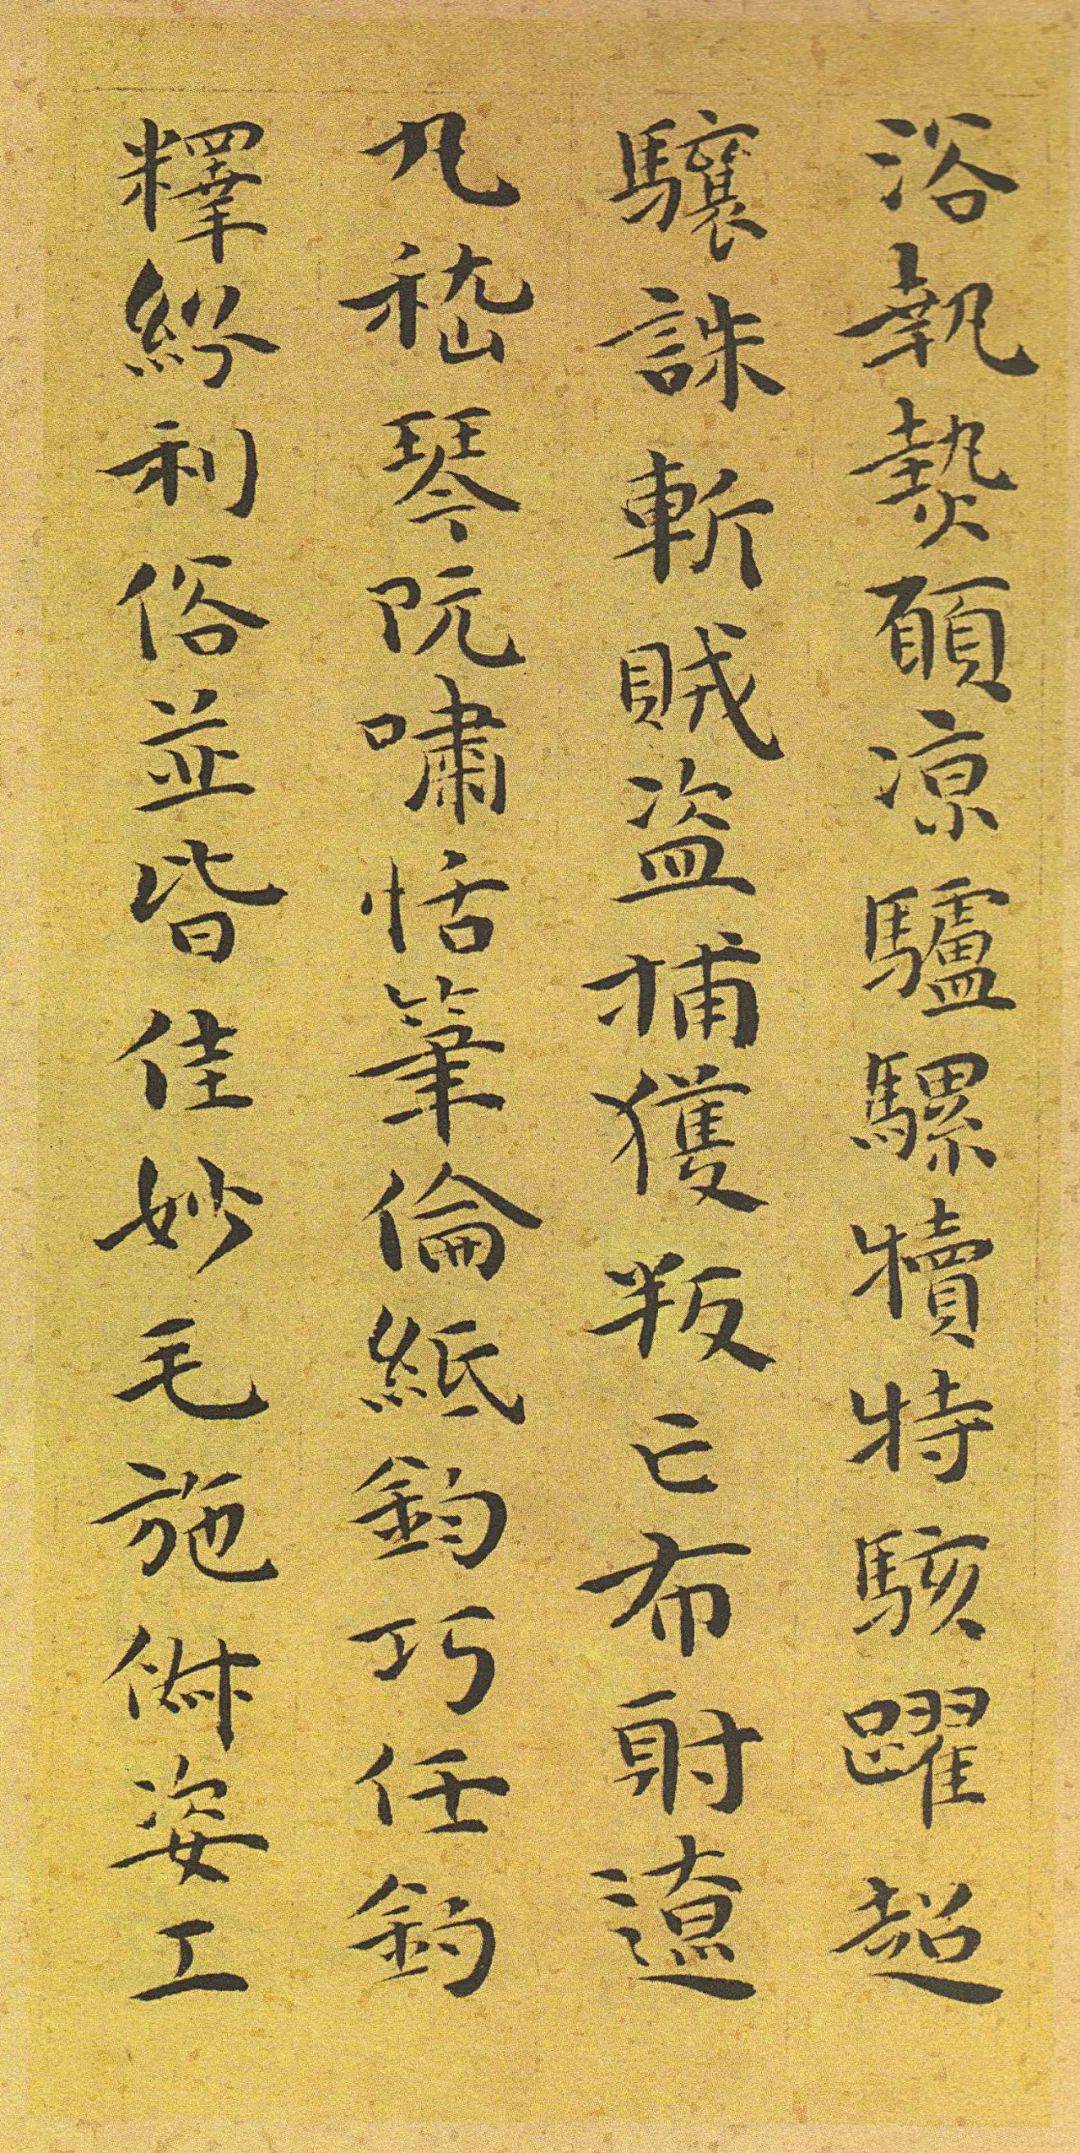 浴執熱願涼驢騾犢特駭躍超
驤誅斬賊盜捕獲叛亡布射遼
丸嵇琴阮嘯恬筆倫紙鈞巧任釣
釋紛利俗並皆佳妙毛施淑姿工